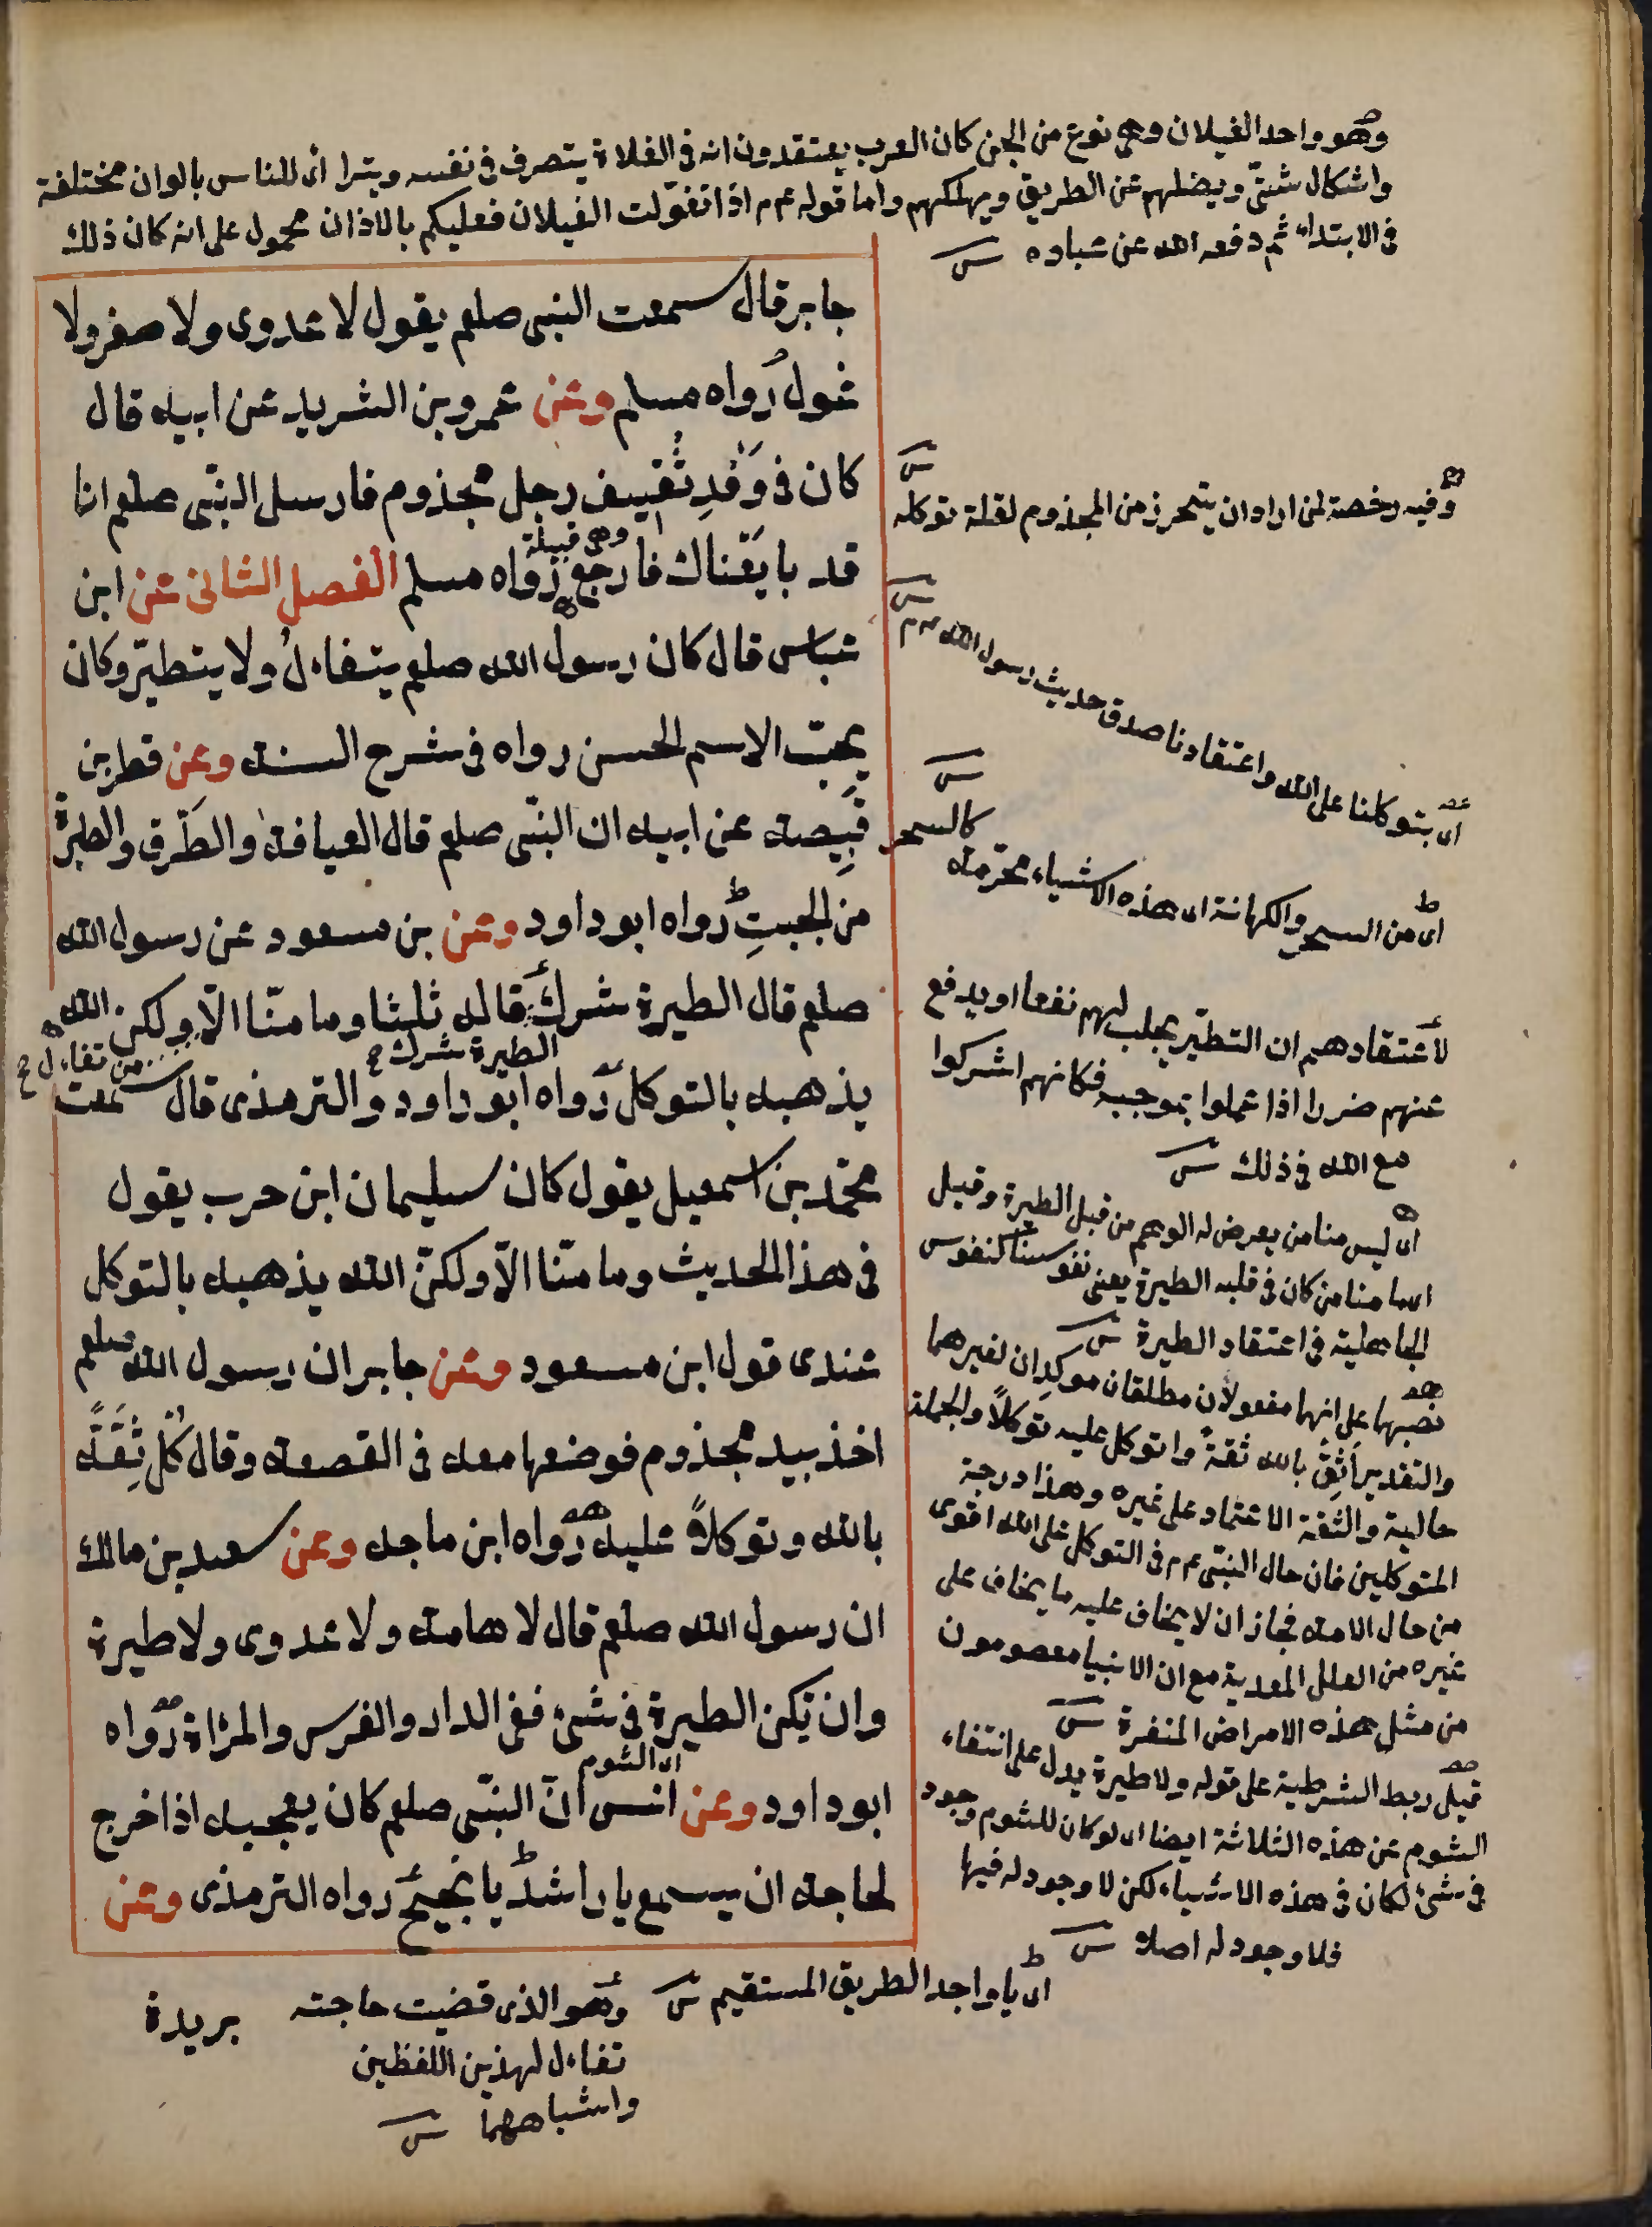 وهو واحد الغيلان وهى نوع من الجن كان العرب يعتقدون انه فى الفلاة يتصرف فى نفسه ويتراأى للناس بالوان مختلفة
واشكال شتّى ويضلهم عن الطريق ويهلكهم واما قوله عم اذا تغوّلت الغيلان فعليكم بالاذان محمول على انه كان ذلك
فى الابتداء ثم دفعه الله عن عباده
جابر قال سمعت النبى صلعم يقول لا عدوى ولا صفر ولا
غول رواه مسلم وعن عمرو بن الشريد عن ابيه قال
كان فى وَفْدِ ثَقيف رجل مجذوم فارسل النبّى صلعم انا
وهى قبيلة
قد بايَعْناك فارجع رواه مسلم الفصل الثانى عن ابن
عباس قال كان رسول الله صلعم يتفاءلُ ولا يتطيّر وكان
يحبّ الاسم الحسن رواه فى شرح السنة وعن قطن بن
قَبِيصة عن ابيه ان النبّى صلعم قال العيافة والطَرق والطيرة
من الجبتِ رواه ابو داود وعن بن مسعود عن رسول الله
صلعم قال الطيرة شرك قاله ثلثا وما منّا الّا ولكن الله
الطيرة شرك
يذهبه بالتوكل رواه ابو داود والترمذى قال سمعت
محمّد بن اسمعيل يقول كان سليمان ابن حرب يقول
فى هذا الحديث وما منّا الّا ولكنّ الله يذهبه بالتوكل
عندى قول ابن مسعود وعن جابر ان رسول الله صلعم
اخذ بيد مجذوم فوضعها معه فى القصعة وقال كُلْ ثِقَةً
بالله وتوكلاً عليه رواه ابن ماجه وعن سعد بن مالك
ان رسول الله صلعم قال لا هامة ولا عدوى ولا طيرة
وان تكن الطيرة فى شئ ففى الدار والفرس والمراة رواه
اى الشوم
ابو داود وعن انس انّ النبّى صلعم كان يعجبه اذا خرج
لحاجة ان يسمع يا راشدُ يا نجيحُ رواه الترمذى وعن
وفيه رخصة لمن اراد ان يتحرز من المجذوم لقلة توكله
اى بتوكلنا على الله واعتقادنا صدق حديث رسول الله عم
اى من السحر والكهانة اى هذه الاشياء محرمة
كالسحر
لاعتقادهم ان التطيّر يجلب لهم نفعا او يدفع
عنهم ضررا اذا عملوا بموجبه فكانهم اشركوا
مع الله فى ذلك
اى ليس منا من يعرض له الوهم من قبل الطيرة وقيل
اى ما منا من كان فى قلبه الطيرة يعنى نفوسنا كنفوس
الجاهلية فى اعتقاد الطيرة
نصبها على انها مفعولان مطلقان موكدان لغيرهما
والتقدير اَثِقُ بالله ثقةً واتوكل عليه توكلاً والجملة
حالية والثقة الاعتماد على غيره وهذا درجة
المتوكلين فان حال النبّى عم فى التوكل على الله اقوى
من حال الامة فجاز ان لا يخاف عليه ما يخاف على
غيره من العلل المعدية مع ان الانبيا معصومون
من مثل هذه الامراض المنفرة
قيل ربط الشرطية على قوله ولا طيرة يدل على انتفاء
الشوم عن هذه الثلاثة ايضا اى لو كان للشوم وجود
فى شئ لكان فى هذه الاشياء لكن لا وجود له فيها
فلا وجود له اصلا
اى يا واجد الطريق المستقيم
وهو الذى قضيت حاجته
تفاءل لهذين اللفظين
واشباههما
بريدة